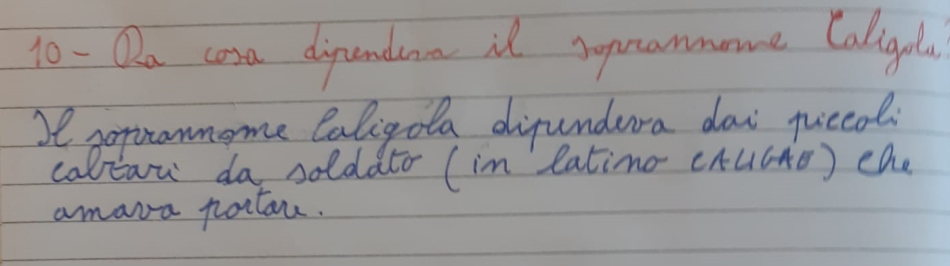 10 - Da cosa dipendeva il soprannome Caligola?
Il soprannome Caligola dipendeva dai piccoli
calzari da soldato (in latino CALIGAE) che
amava portare.